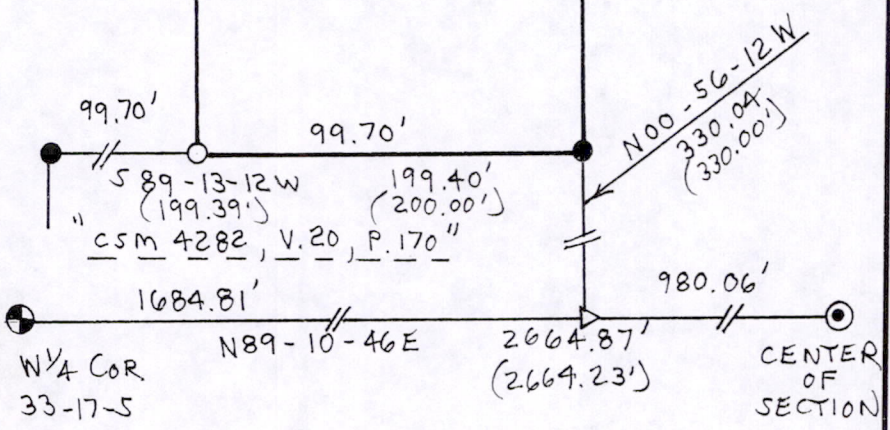 99.70'
99.70'
N00-56-12W
330.04
(330.00')
S 89-13-12W
(199.39')
199.40'
(200.00')
" CSM 4282, V.20, P.170"
1684.81'
980.06'
N89-10-46E
2664.87'
(2664.23')
W1/4 COR
33-17-5
CENTER
OF
SECTION